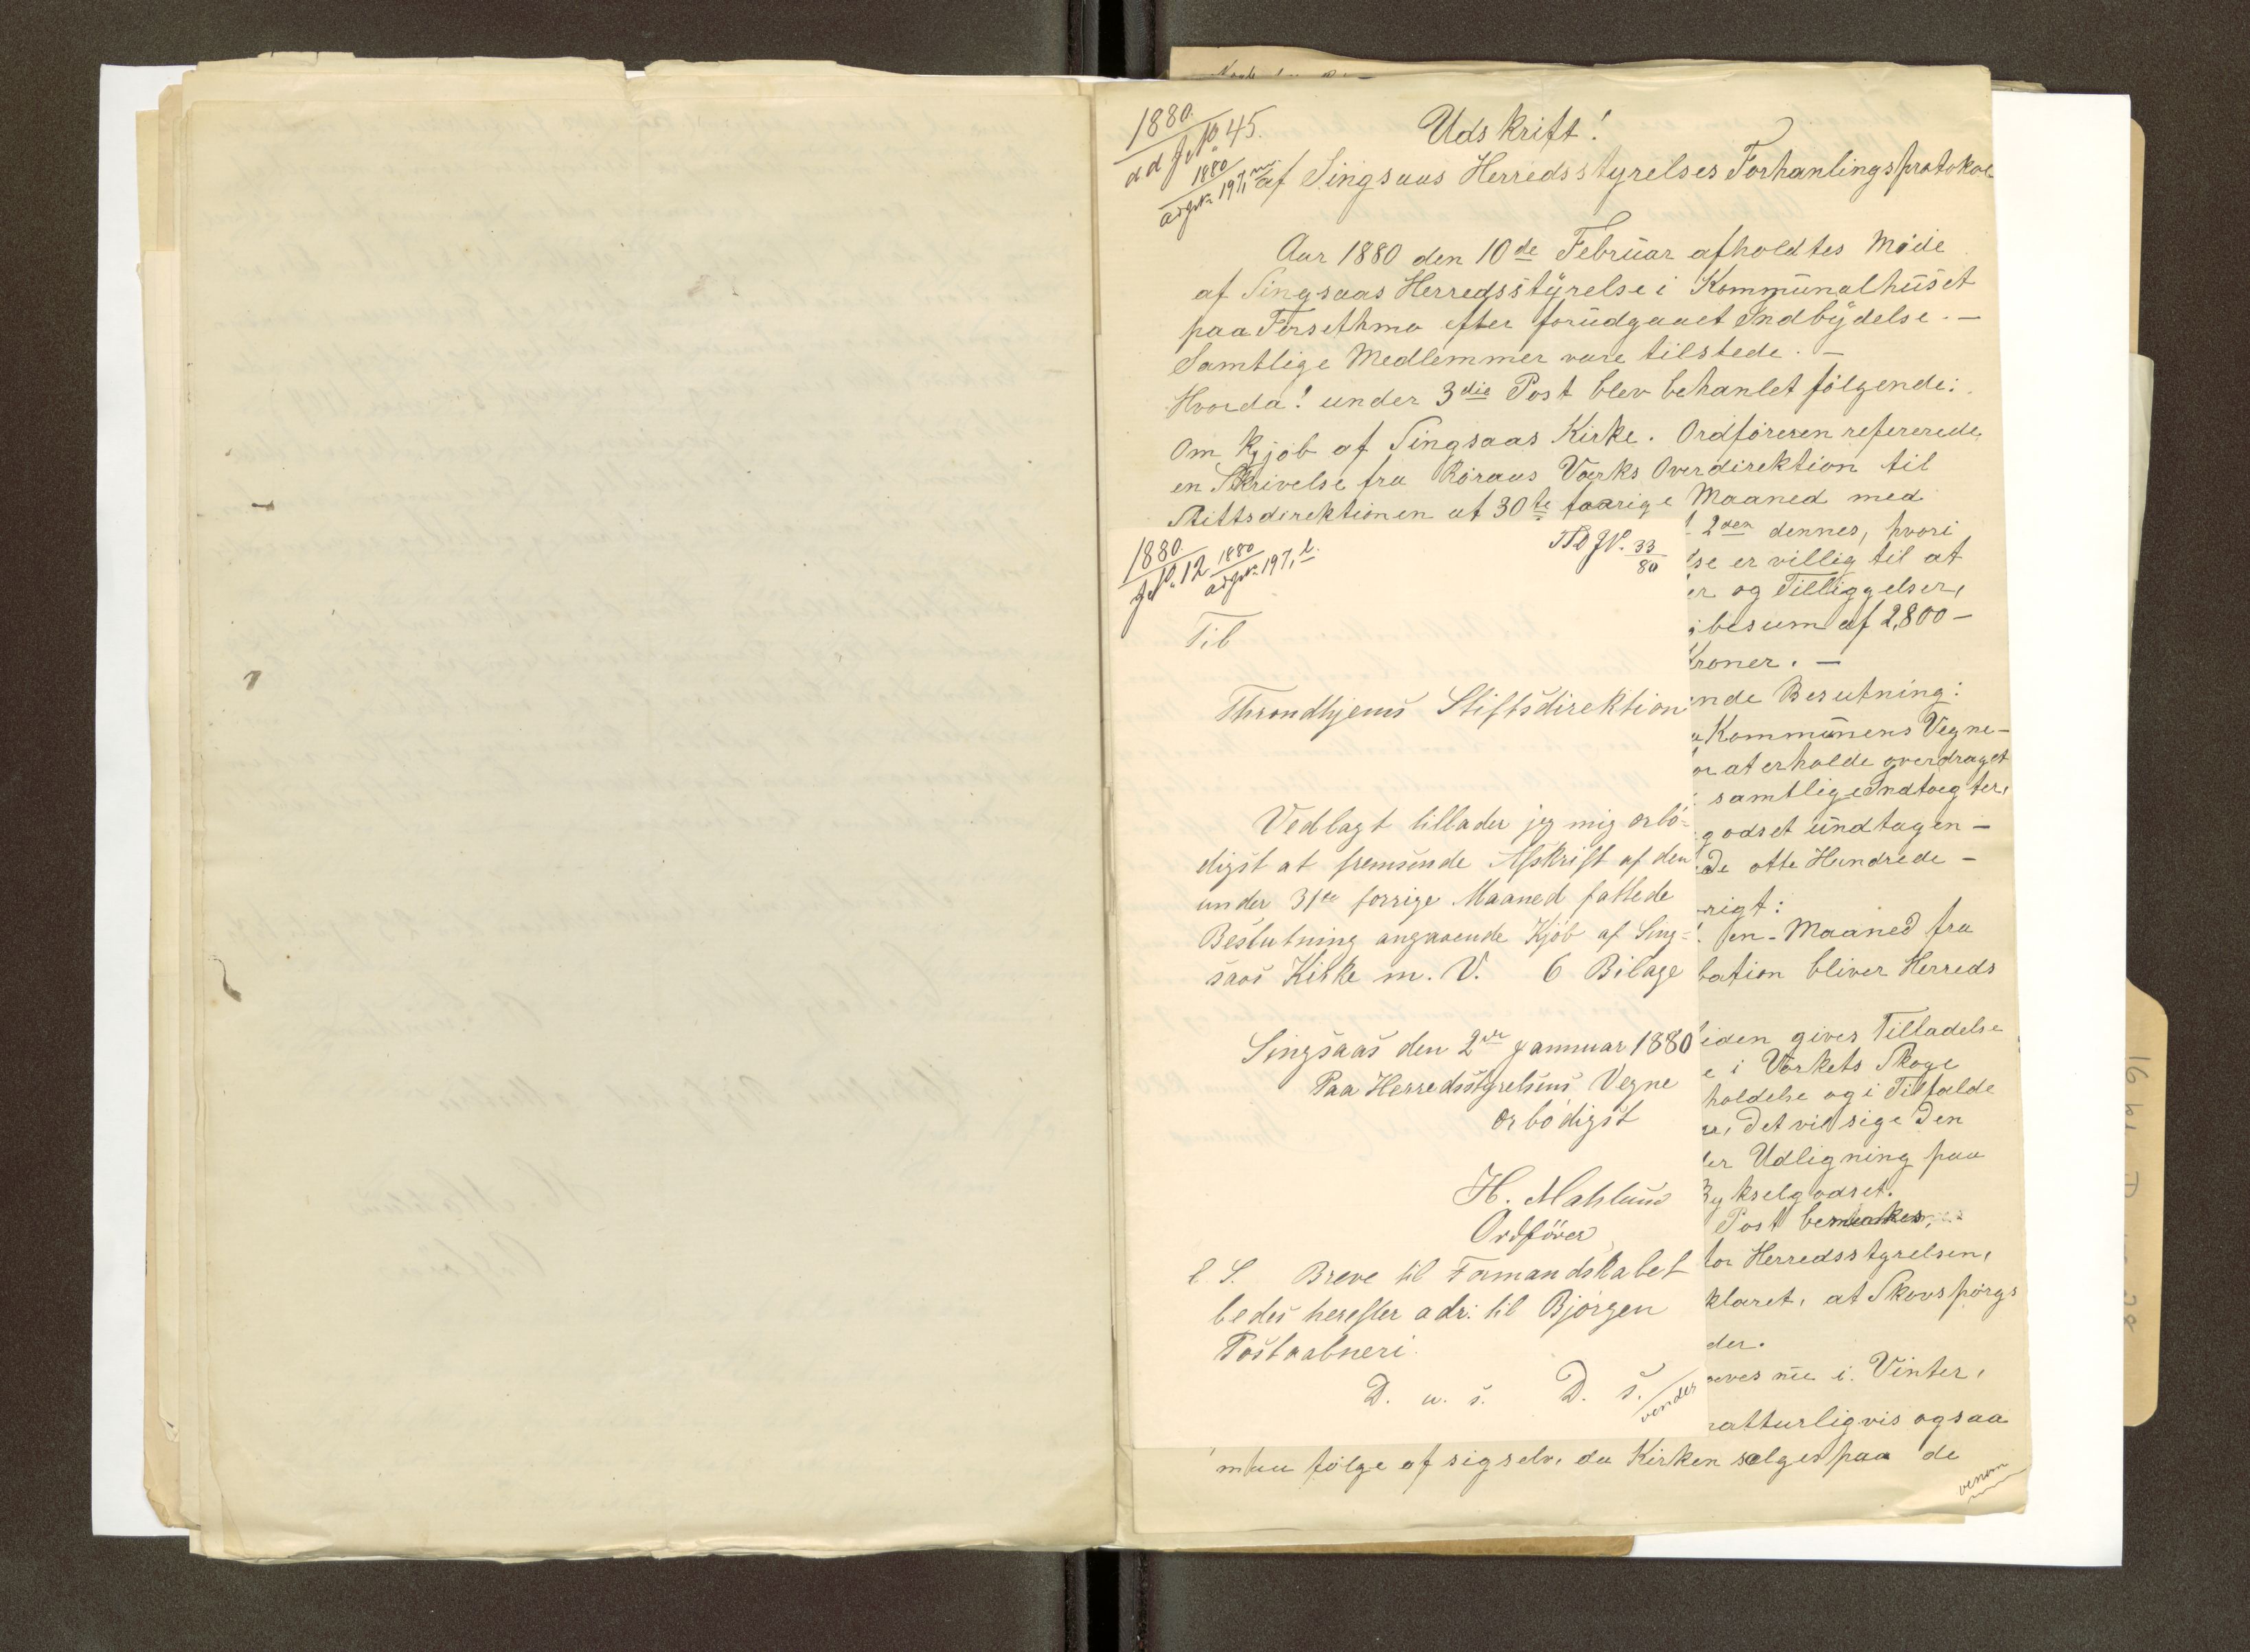 1880.
ad J. No 45.
1880
adgst. 197, m.
Udskrift!
af Singsaas Herredsstyrelses Forhanlingsprotokol
Aar 1880 den 10de Februar afholdtes Møde
af Singsaas Herredsstyrelse i Kommunalhuset
paa Forsethmo efter forudgaaet Indbydelse. —
Samtlige Medlemmer vare tilstede. —
Hvorda! under 3die Post blev behanlet følgende:
Om Kjøb af Singsaas Kirke. Ordføreren refererede,
en Skrivelse fra Røraas Værks Overdirektion til
Stiftsdirektionen af 30te faarige Maaned med
2den dennes, hvori
lse er villig til at
er og Tilliggelser,
jbesum af 2,800 —
Kroner. —
ende Beslutning:
a Kommunens Vegne —
or at erholde overdraget
samtlige Indtægter,
godset undtagen —
de otte Hundrede —
rigt:
1. en — Maaned fra
bation bliver Herreds
iden gives Tilladelse
e i Værkets Skoge
holdelse og i Tilfælde
re, det vil sige Den
der Udligning paa
Bykselgodset.
Post bemærkes,
for Herredsstyrelsen,
klaret, at Skovspørgs
der.
øves nu i Vinter,
natturligvis ogsaa
maa følge af sig selv, da Kirken sælges paa de
1880.
J. No 12
1880
adgst. 197, l.
JN. 33
80
Til
Throndhjems Stiftsdirektion
Vedlagt tillader jeg mig ærbø-
digst at fremsende Afskrift af den
under 31te forrige Maaned fattede
Beslutning angaaende Kjøb af Sing-
saas Kirke m. V. 6 Bilage
Singsaas den 2den Jannuar 1880
Paa Herredsstyrelsens Vegne
ærbødigst
H. Mahlum
Ordfører
Breve til Formandskabet
bedes herefter adr: til Bjørgen
Postaabneri.
D. u. s. D. s.
vendes